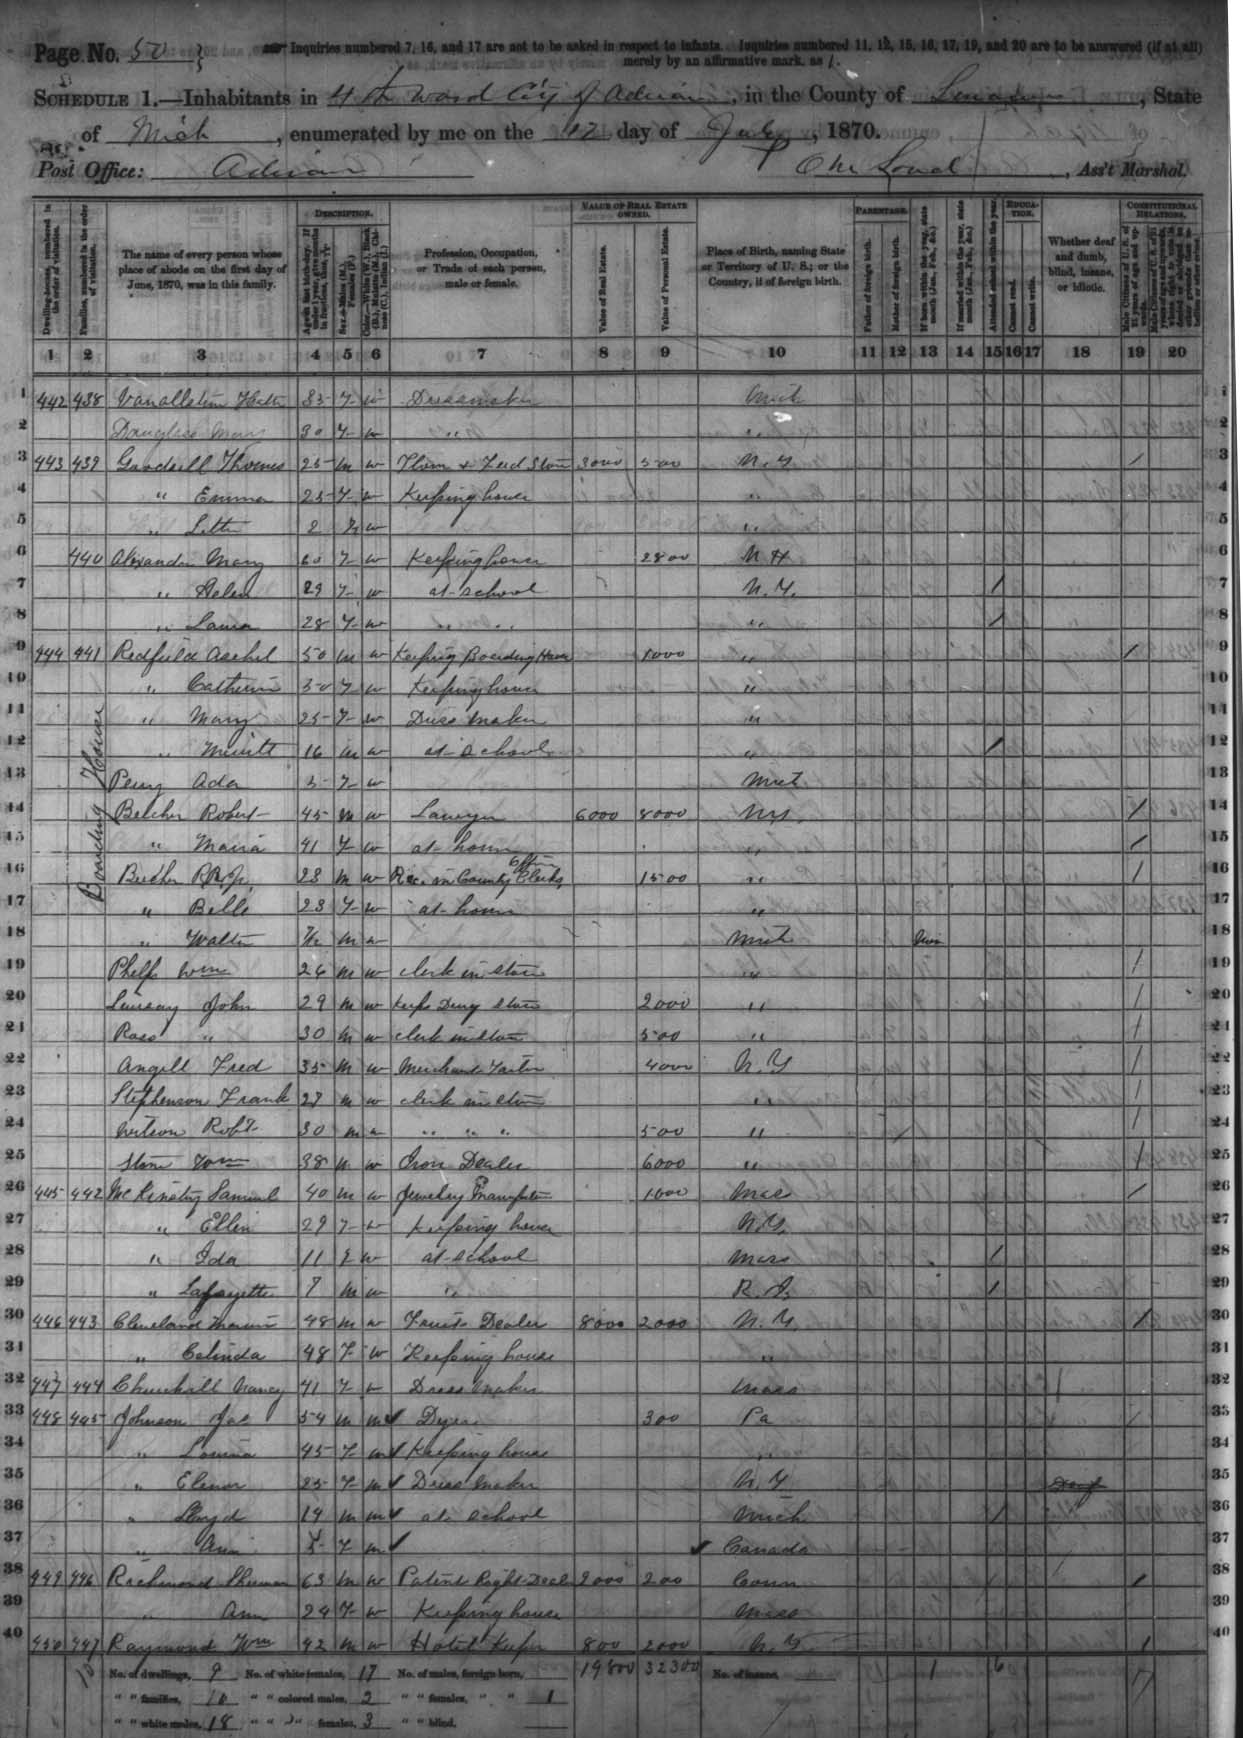 Page No. 50
Inquiries numbered 7, 16, and 17 are not to be asked in respect to infants. Inquiries numbered 11, 12, 15, 16, 17, 19, and 20 are to be answered (if at all)
merely by an affirmative mark, as /.
SCHEDULE 1.—Inhabitants in 4th Ward City of Adrian, in the County of Lenawee, State
of Mich, enumerated by me on the 12 day of July, 1870.
Post Office: Adrian Ass't Marshal.
DESCRIPTION. VALUE OF REAL ESTATE OWNED. PARENTAGE. EDUCATION. CONSTITUTIONAL RELATIONS.
Dwelling-houses, numbered in the order of visitation.
Families, numbered in the order of visitation.
The name of every person whose place of abode on the first day of June, 1870, was in this family.
Profession, Occupation, or Trade of each person, male or female.
Value of Real Estate.
Value of Personal Estate.
Place of Birth, naming State or Territory of U. S.; or the Country, if of foreign birth.
Father of foreign birth.
Mother of foreign birth.
If born within the year, state month (Jan., Feb., &c.)
If married within the year, state month (Jan., Feb., &c.)
Attended school within the year.
Cannot read.
Cannot write.
Whether deaf and dumb, blind, insane, or idiotic.
1 2 3 4 5 6 7 8 9 10 11 12 13 14 15 16 17 18 19 20
1 442 438 F w Dressmaker Mich 1
2 Douglass Mary 30 F w " " 2
3 443 439 Goodsell Thomas 25 M w Flour & Feed Store 3000 500 N.Y / 3
4 " Emma 25 F w Keeping house " 4
5 " 2 w " 5
6 440 Alexander Mary 60 F w Keeping house 2800 N H 6
7 " Helen 29 F w at school N.Y. / 7
8 " Laura 28 F w " " " / 8
9 444 441 Redfield Asahel 50 M w Keeping Boarding House 1000 " / 9
10 " Catherine 50 F w Keeping house " 10
11 " Mary 25 F w Dress Maker " 11
12 " Merritt 16 M w at school " / 12
Boarding House
13 Perry Ada 5 F w Mich 13
14 Beecher Robert 45 M w Lawyer 6000 8000 N.Y. / 14
15 " Maria 41 F w at home " / 15
16 Beecher 23 M w Rec. in County Clerks Office 1500 " / 16
17 " Belle 23 F w at home " 17
18 " Walter M w Mich 18
19 Phelps Wm 26 M w clerk in store " / 19
20 John 29 M w Keeps Drug Store 2000 " / 20
21 Ross " 30 M w clerk in store 500 " / 21
22 Angell Fred 35 M w Merchant Tailor 4000 N.Y / 22
23 Stephenson Frank 27 M w clerk in store " / 23
24 Wilson Robt 30 M w " " " 500 " / 24
25 Stone Wm 38 M w Iron Dealer 6000 " / 25
26 445 442 McKinstry Samuel 40 M w Jewelry 1000 Mass / 26
27 " Ellen 29 F w Keeping house N.Y. 27
28 " Ida 11 F w at school Mass / 28
29 " Lafayette 7 M w " R. I. / 29
30 446 443 Cleveland 48 M w Fruit Dealer 8000 2000 N.Y. / 30
31 " Celinda 48 F w Keeping house " 31
32 447 444 Churchill Nancy 41 F w Dress Maker Mass / 32
33 448 445 Johnson Jac 54 M M Dyer 300 Pa / 33
34 " Louisa 45 F M Keeping house " 34
35 " Elenor 25 F M Dress Maker N.Y Deaf 35
36 " Lloyd 19 M M at school Mich / 36
37 " Ann 5 F M Canada 37
38 449 446 Richmond Sherman 63 M w Patent Right Deal 2000 200 Conn / 38
39 " Ann 24 F w Keeping house 39
40 450 447 Raymond Wm 42 M w Hotel Keeper 800 2000 N.Y. / 40
No. of dwellings, 9 No. of white females, 17 No. of males, foreign born, 19800 32300 No. of insane, 1 6 17
" " families, 10 " " colored males, 2 " " females, " " 1
" " white males, 18 " " " females, 3 " " blind,